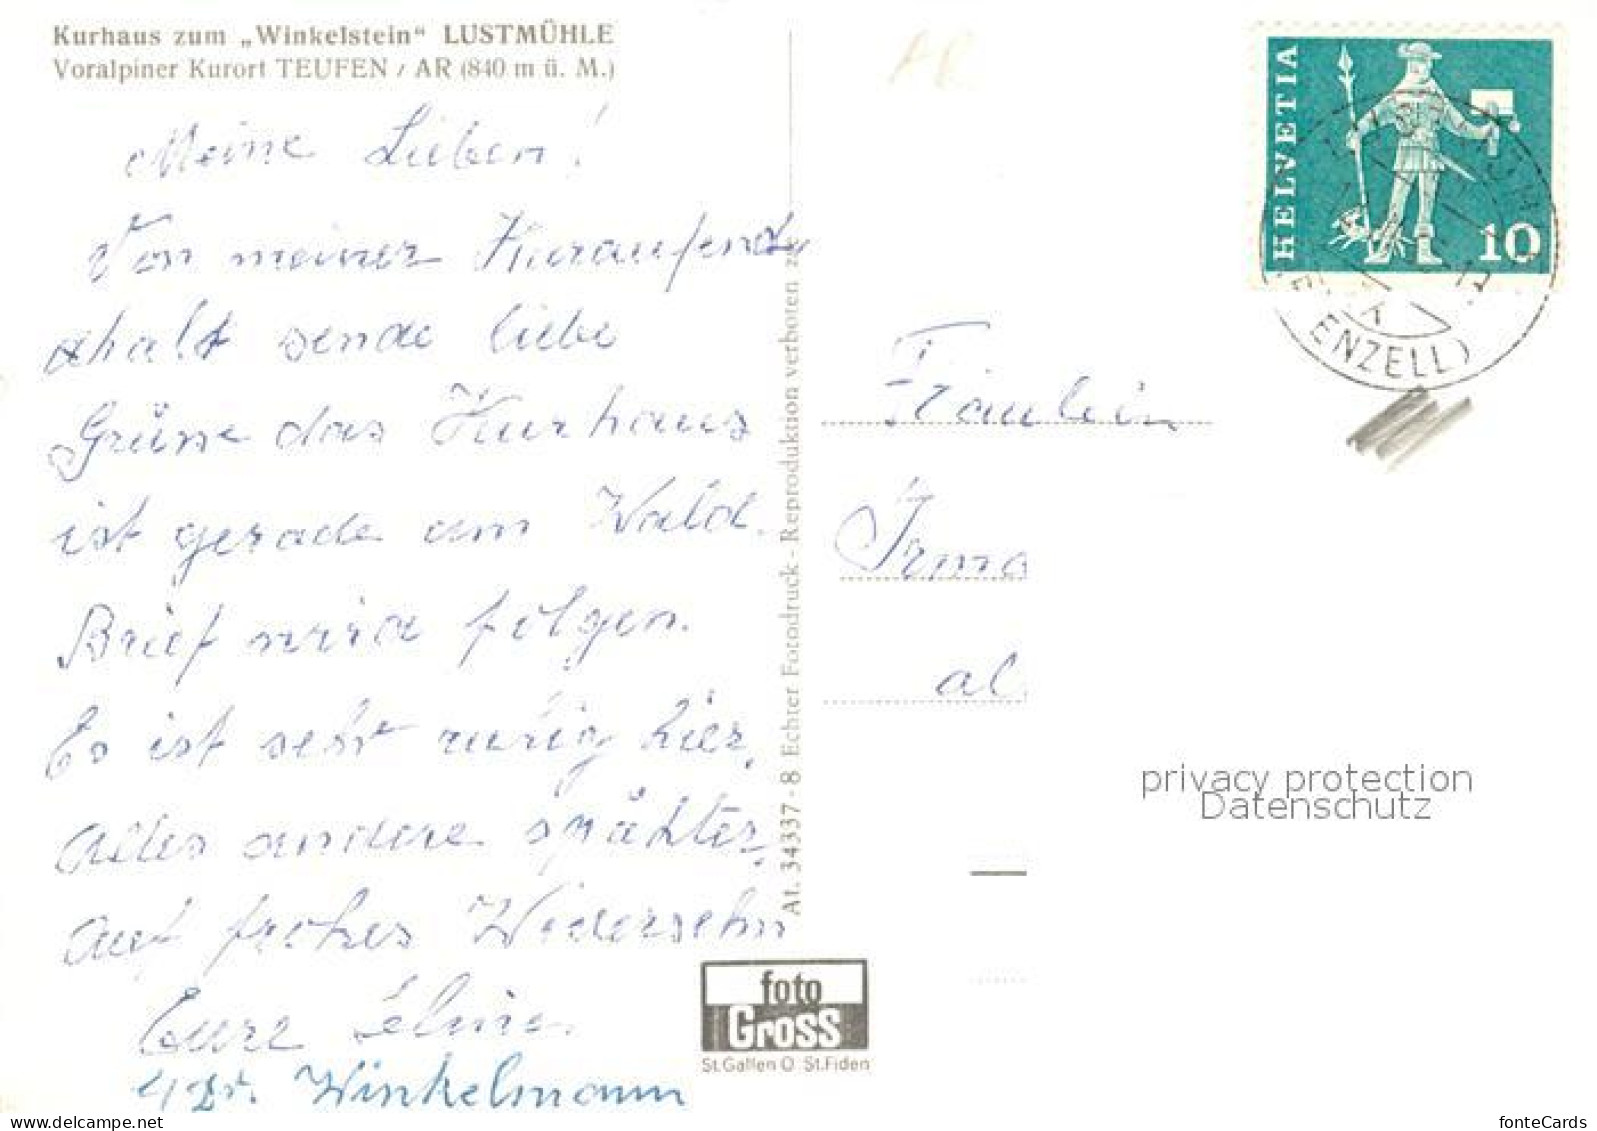 Kurhaus zum „Winkelstein“ LUSTMÜHLE
Voralpiner Kurort TEUFEN / AR (840 m ü. M.)
AR
Meine Lieben!
Von meiner Kuraufend
halt sende liebe
Grüsse das Kurhaus
ist gerade am Wald.
Brief wird folgen.
Es ist sehr ruhig hier,
alles andere spähter,
auf frohes Widersehn
Eure
Dr. Winkelmann
At. 34337 - 8 Echter Fotodruck - Reproduktion verboten
foto
Gross
St. Gallen O St. Fiden
HELVETIA
10
ENZELL)
Fräulein
Irma
al
privacy protection
Datenschutz
fonteCards